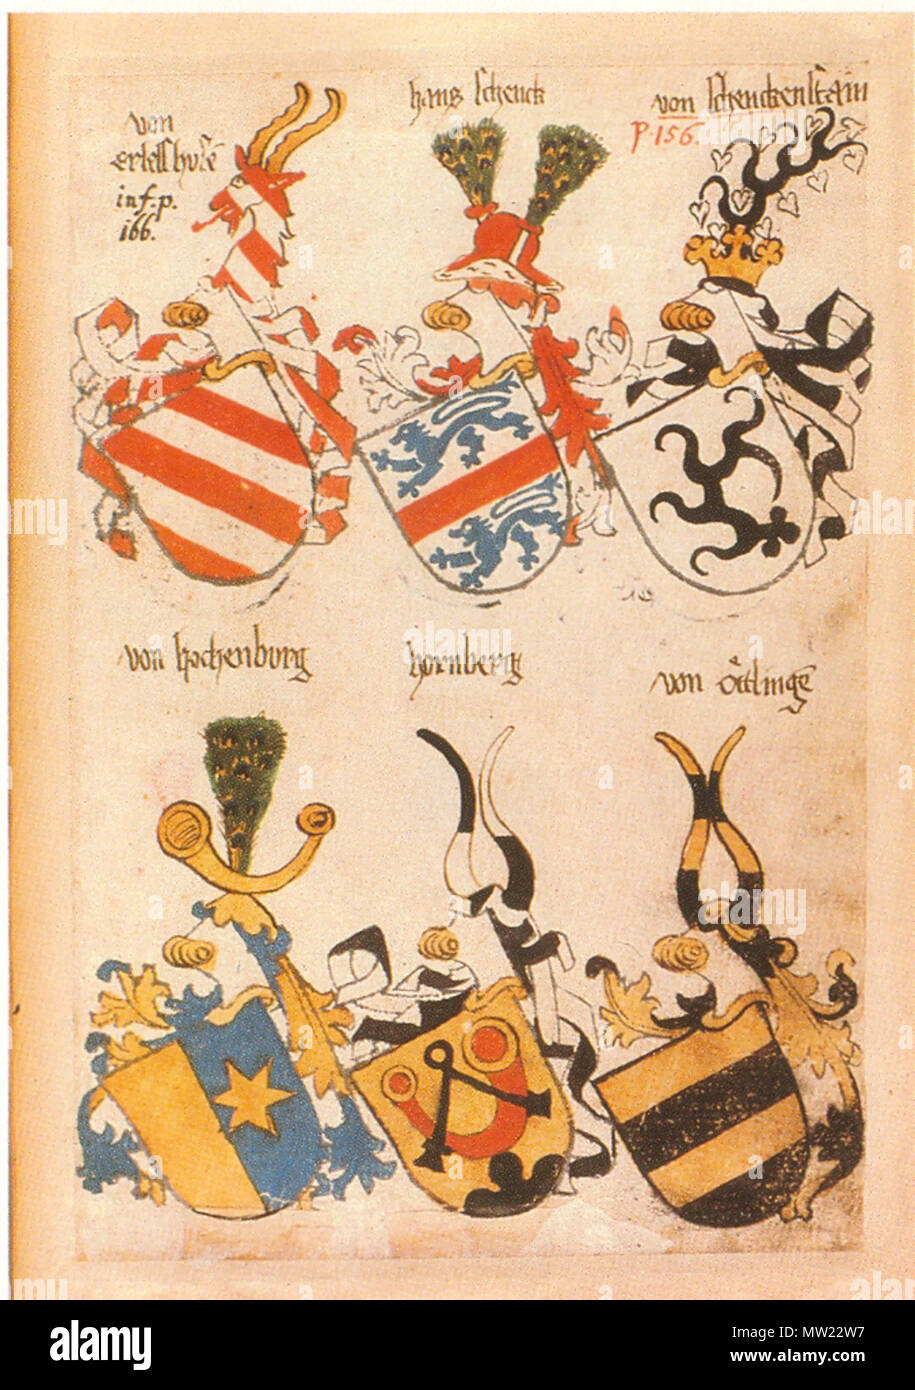 von
ertelshusē
inf. p.
166.
hans schenck
von schenckenstain
p. 156.
von hochenburg
hornberg
von öttlingē
alamy
Image ID: MW22W7
www.alamy.com